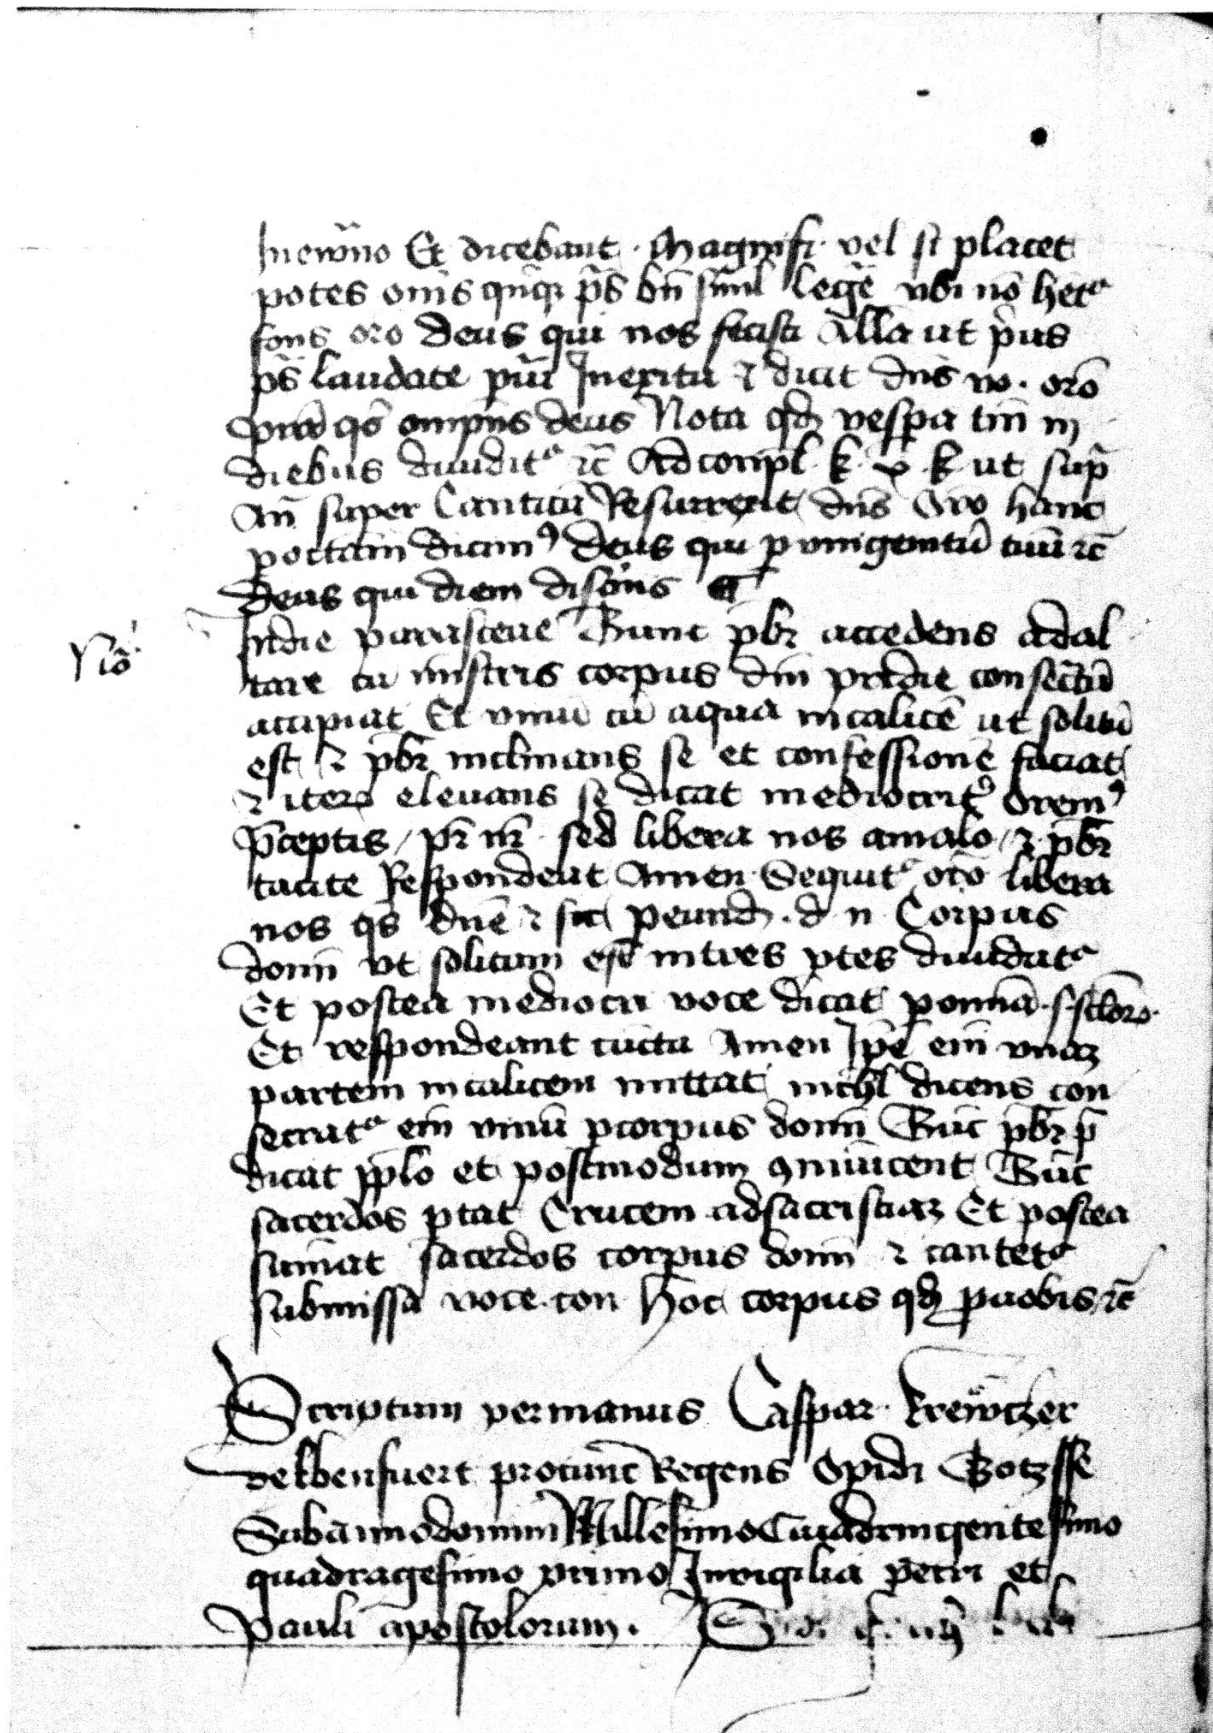 Et dicebant · Magnifi · vel si placet
potes om̄s p̄s bn̄ simul legē vbi nō het᷒
fons orō deus qui nos fecisti Allā ut p̄us
p̄s laudate Inexitu ⁊ dicit dn̄s vo · orō
qs̄ omp̄ns deus Nota qd̄ vespa tm̄ in
diebus diuidit᷒ ⁊c̄ Ad conpl̄ · k · x · k · ut sup̄
An̄ super Canticū Resurrexit dn̄s Orō hanc
dicim⁹ deus qui p vnigenitū tuū ⁊c̄
Deus qui diem
Nō
Indie parasceue Tunc p̄br accedens adal
tare cū minstris corpus dn̄i pridie consec̄tū
accipiat Et vinū cū aqua incalicē ut solitū
est ⁊ p̄br inclinans se et confessionē faciat
⁊ iterū elevans se dicat mediocrit᷒ Orem⁹
p̄ceptis / pr̄ nr̄ · sed libera nos amalo / ⁊ p̄br
tacite Respondeat Amen · Sequit᷒ orō libera
nos qs̄ dn̄e ⁊ sic · d · n · Corpus
domī vt solitum est intres ptes diuidat᷒
Et postea mediocri voce dicat p omnia · s · sclōrꝫ ·
Et respondeant cuncti Amen Ip̄e em̄ vnaꝫ
partem incalicem mittat nichl̄ dicens con
secrat᷒ em̄ vinū pcorpus domī Tūc p̄br p̄
dicat pplō et postmodum Tūc
sacerdos ptat Crucem adsacristiaꝫ Et postea
sumat sacerdos corpus domī ⁊ cantet᷒
submissa voce · con · Hoc corpus qd̄ p uobis ⁊c̄
Scriptum permanus Caspar · krewczer
protunc Regens
Subannodomini Millesimo Cuadringentesimo
quadragesimo primo Invigilia petri et
Pauli apostolorum ·